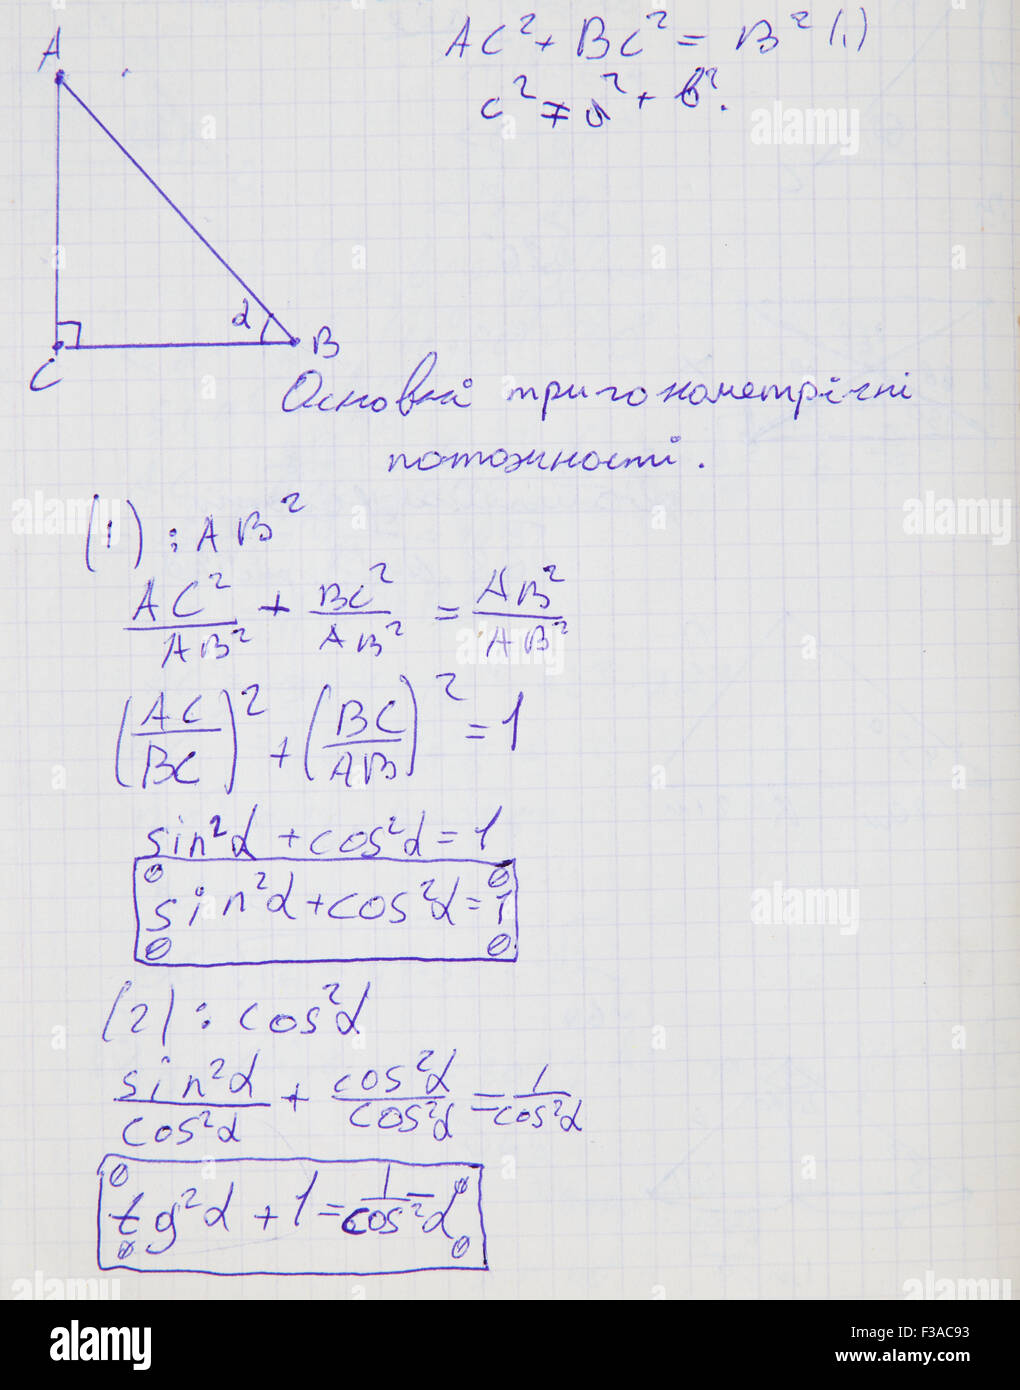 A
AC² + BC² = B² (1)
c² = a² + b².
α
B
C
Основні тригонометрічні
тотожності.
(1) : AB²
AC²/AB² + BC²/AB² = AB²/AB²
(AC/BC)² + (BC/AB)² = 1
sin²α + cos²α = 1
sin²α + cos²α = 1
(2) : cos²α
sin²α/cos²α + cos²α/cos²α = 1/cos²α
tg²α + 1 = 1/cos²α
alamy
Image ID: F3AC93
www.alamy.com